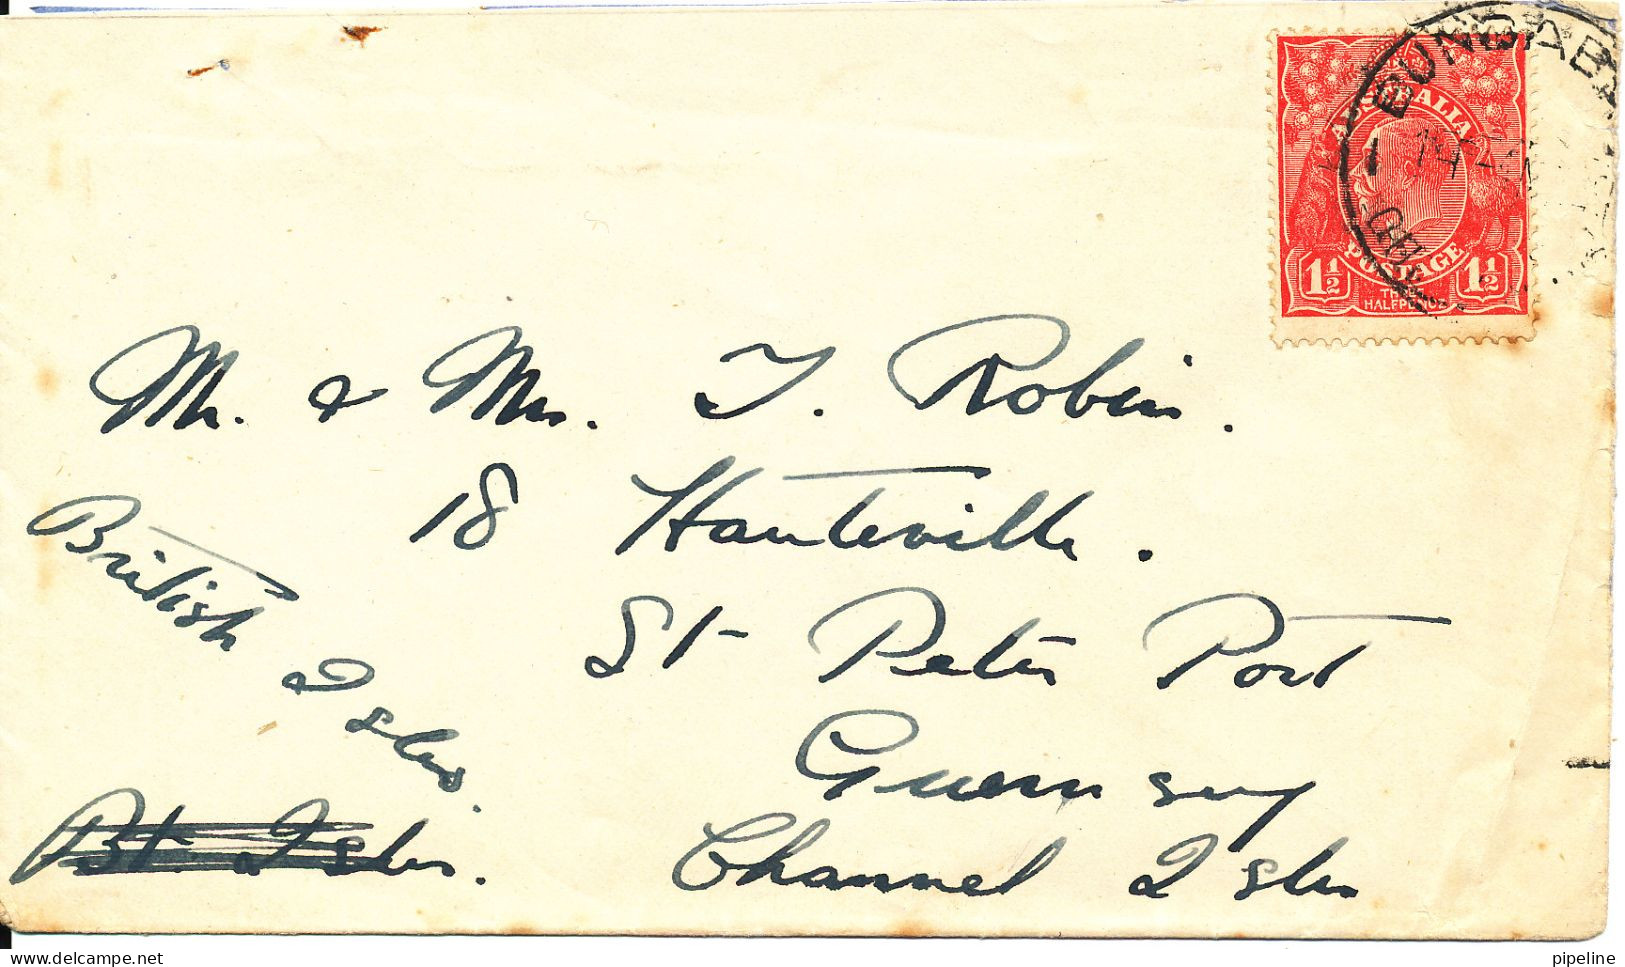 AUSTRALIA
POSTAGE
1½ 1½
HALFPENCE
Mr. & Mrs. T. Robin.
18 Hauteville.
St Peter Port
Guernsey
Channel Isles
British Isles.
Bt. Isles.
pipeline